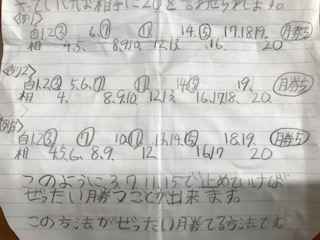 言っていけば相手に20を言わせられます。
<例1>
自1.2③ 6.⑦ ⑪ 14.⑮ 17.18.19. 月勝ち
相 4.5. 8.9.10. 12.13. 16. 20
<例2>
自1.2③ 5.6.⑦ ⑪ 14⑮ 19. 月勝ち
相 4. 8.9.10. 12.13 16.17.18. 20.
自1.2③ ⑦ 10.⑪ 13.14.⑮ 18.19. 月勝ち
相 4.5.6. 8.9. 12. 16.17 20.
このように3.7.11.15で止めていけば
ぜったい月勝つことが出来ます。
この方法がぜったい月勝てる方法です。